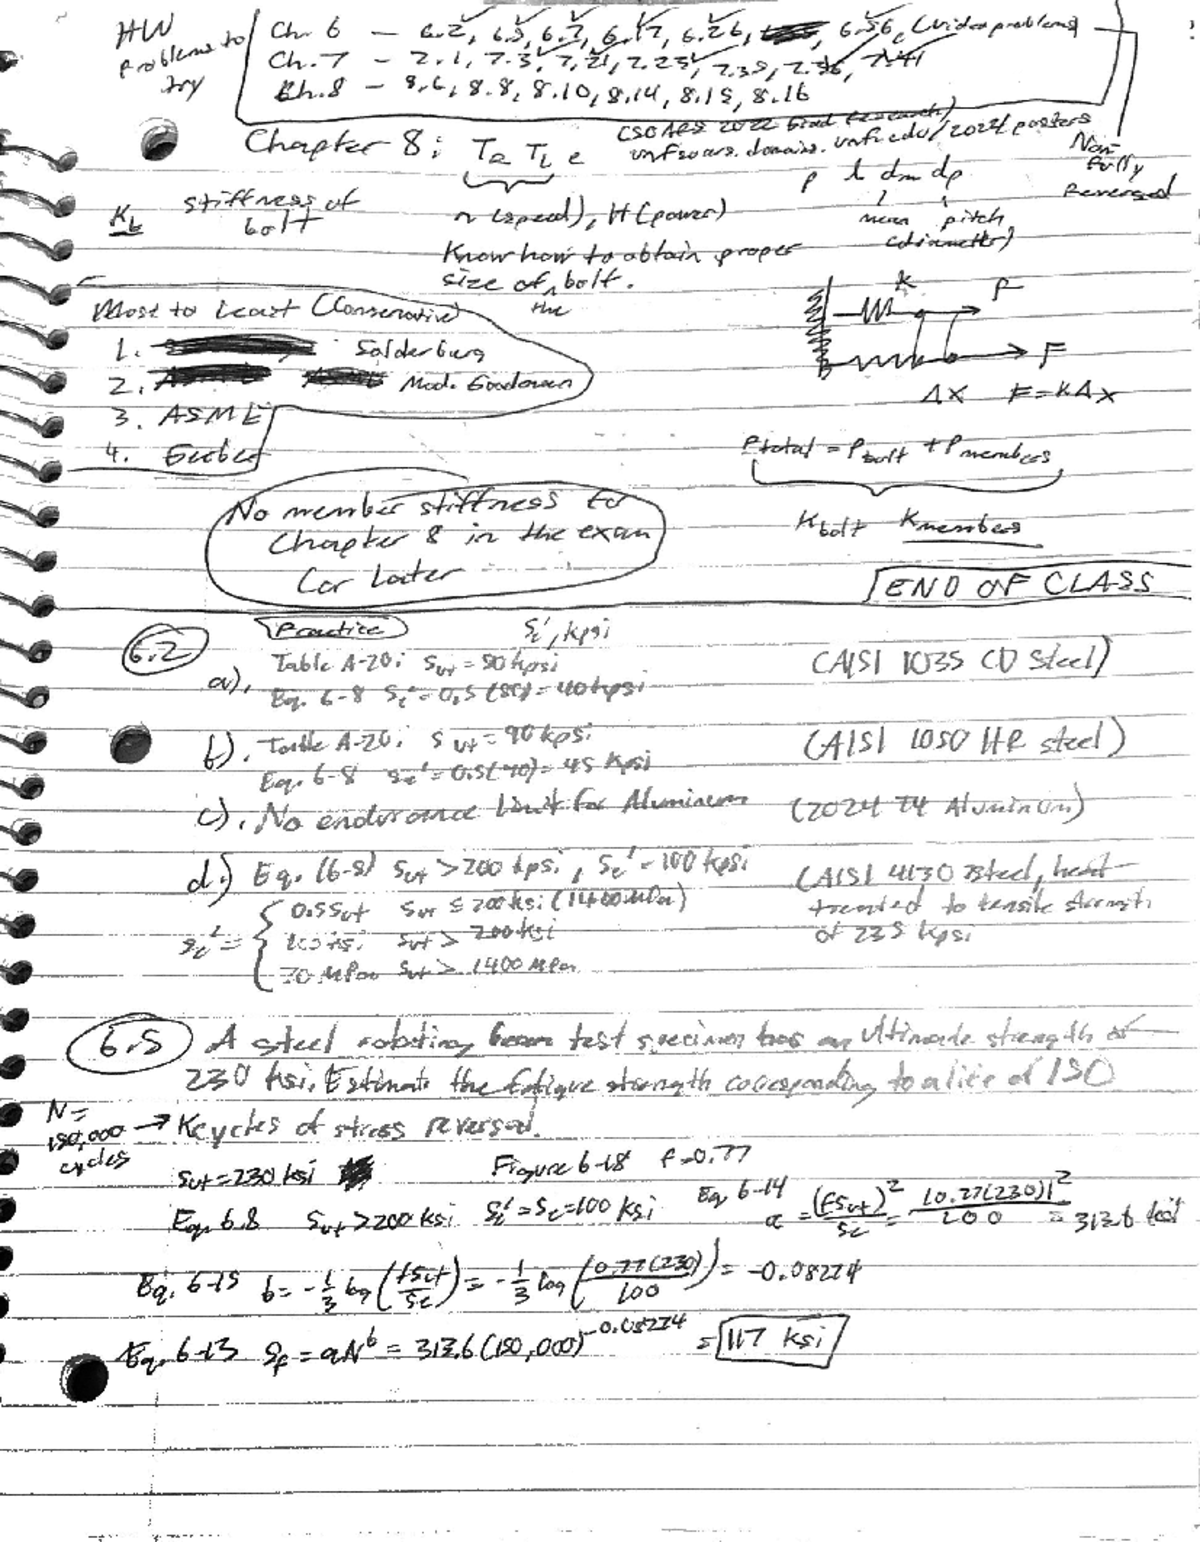 HW Problems to try
Ch. 6 - 6.2, 6.5, 6.7, 6.17, 6.26, 6.56, (video problems)
Ch. 7 - 7.1, 7.3, 7.21, 7.25, 7.35, 7.36, 7.41
Ch. 8 - 8.6, 8.8, 8.10, 8.14, 8.15, 8.16
Non-fully Reversed
Chapter 8: TR TL e
2022 Grad Research)
unfsoars.domains.unf.edu/2024posters
p l dm dp
mean pitch
(diameter)
Kb stiffness of bolt
n (speed), H (power)
Know how to obtain proper
size of the bolt.
Most to Least (Conservative)
1. Solderburg
2. Mod. Goodman
3. ASME
4. Gerber
K F
F
ΔX F=KΔx
Ptotal = Pbolt + Pmembers
Kbolt Kmembers
No member stiffness to
Chapter 8 in the exam
(or Later
END OF CLASS
6.2
Practice Se', kpsi
a). Table A-20: Sut = 80 kpsi (AISI 1035 CD Steel)
Eq. 6-8 Se' = 0.5(80) = 40 kpsi
b). Table A-20: Sut = 90 kpsi (AISI 1050 HR steel)
Eq. 6-8 Se' = 0.5(90) = 45 Kpsi
c). No endurance Limit for Aluminum (2024 T4 Aluminum)
d.) Eq. (6-8) Sut > 200 kpsi, Se' = 100 kpsi (AISI 4130 steel, heat-
treated to tensile strength
of 235 kpsi
Se' = { 0.5Sut Sut ≤ 200 ksi (1400 MPa)
100 ksi Sut > 200 ksi
70 MPa Sut > 1400 MPa
6.5 A steel rotating beam test specimen has an ultimate strength of
230 ksi. Estimate the fatigue strength corresponding to a life of 150
N = 150,000 cycles → Kcycles of stress reversal.
Sut = 230 ksi Figure 6-18 f = 0.77
Eq. 6.8 Sut > 200 ksi Se' = Se = 100 ksi Eq 6-14 a = (fSut)²/Se = [0.77(230)]²/100 = 313.6 ksi
Eq. 6-15 b = -1/3 log (fSut/Se) = -1/3 log (0.77(230)/100) = -0.08274
Eq. 6-13 Sf = aN^b = 313.6(150,000)^-0.08274 = 117 ksi